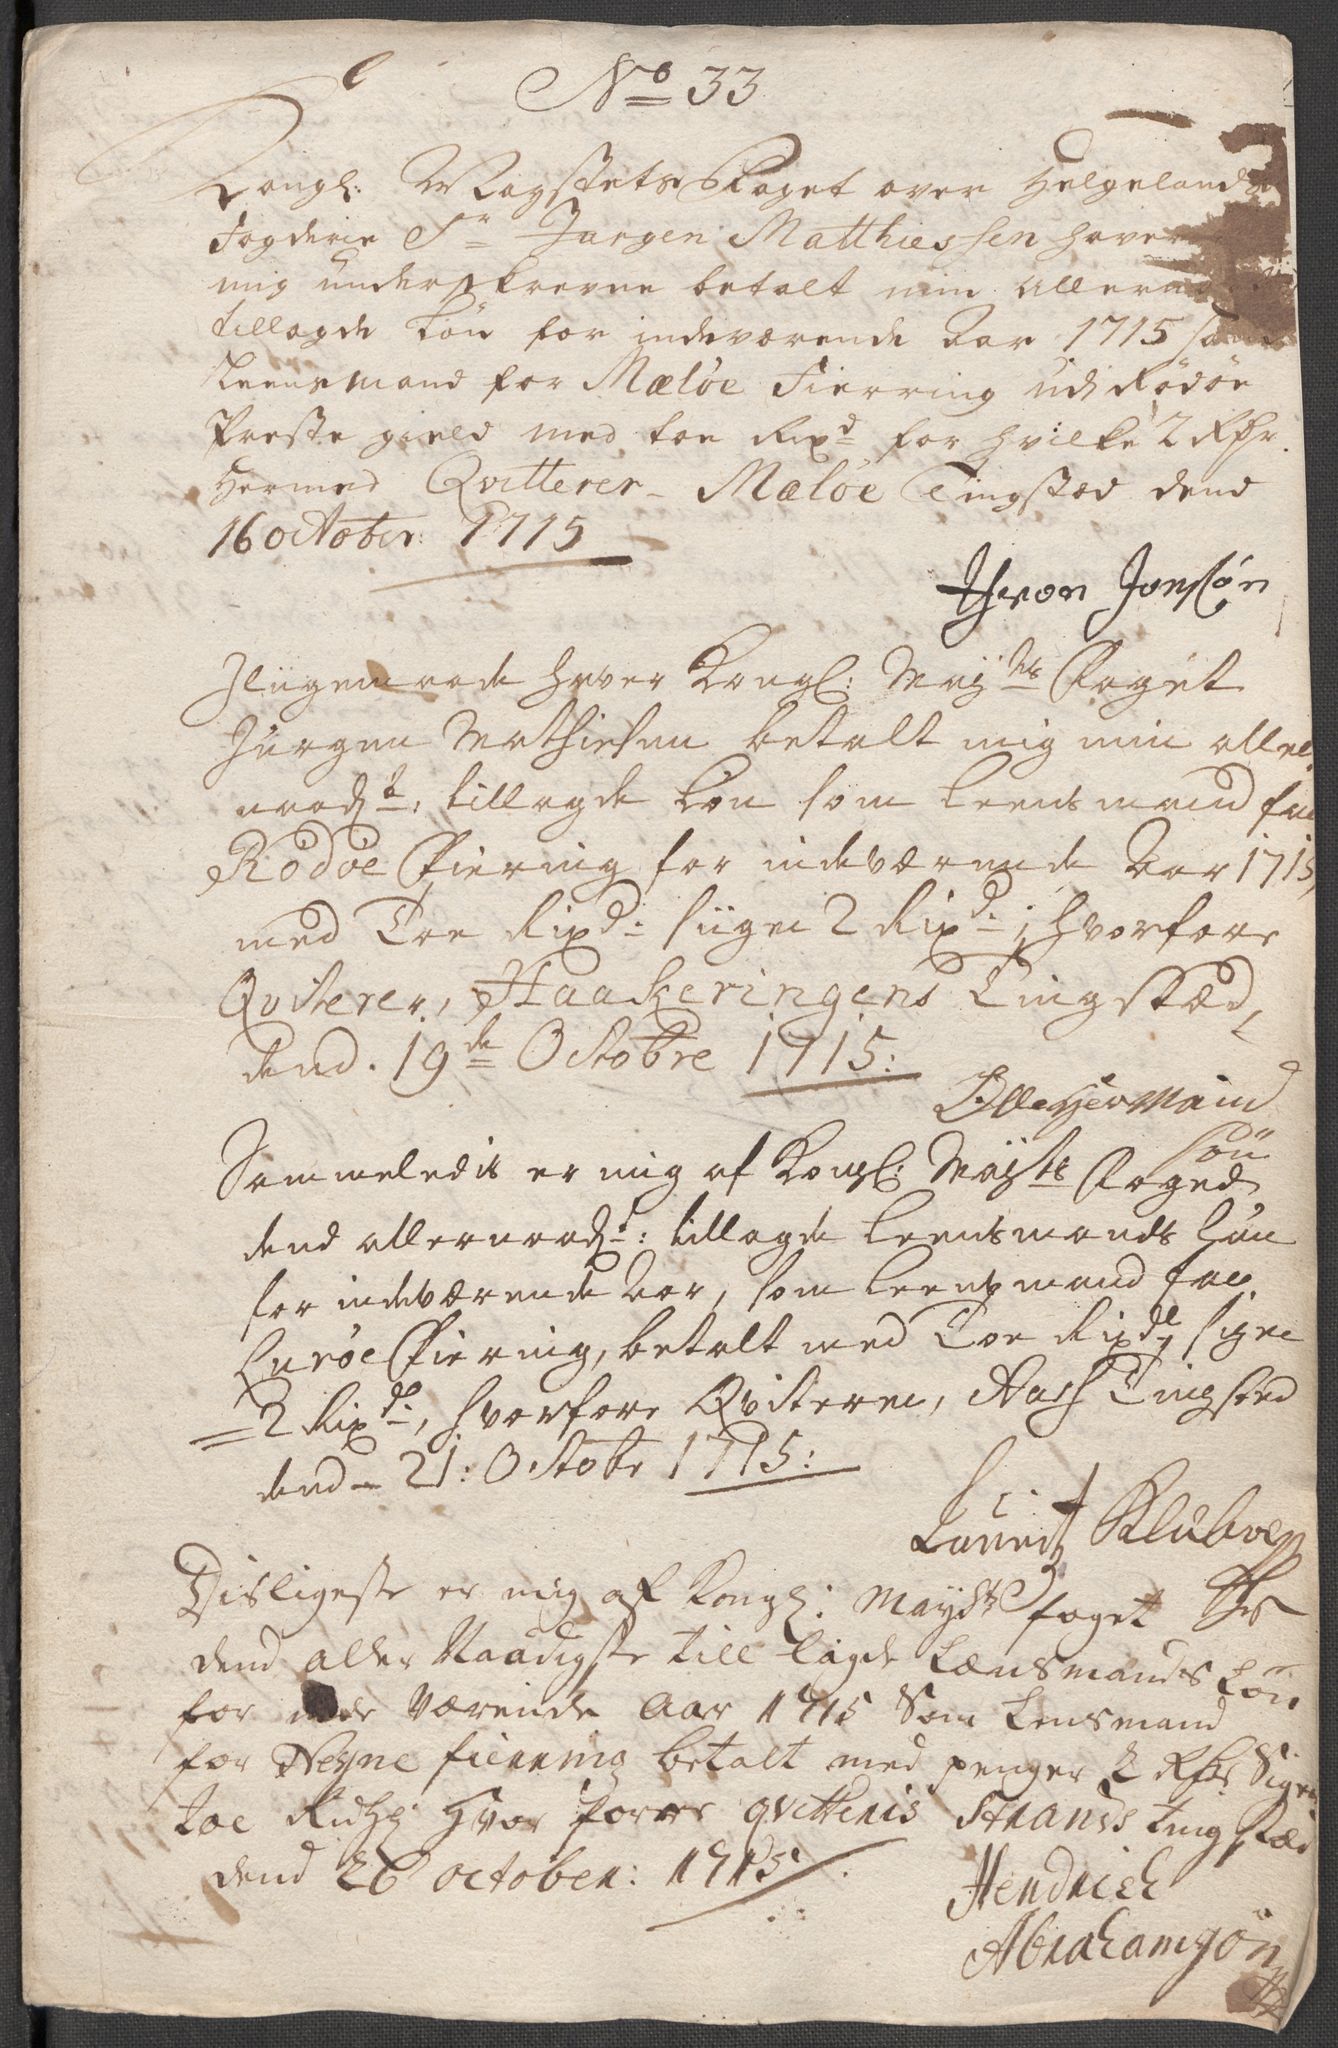 No 33
Kongl: Mayestets Foget over Helgelands
Fogderie Sr Jørgen Matthiessen haver
mig underskrevne betalt min allernaad
tillagde Løn for indeværende Aar 1715 som
Leensmand for Meløe Fierring udi Rødøe
Præste gield med toe Rixd for hvilke 2 Rdr.
Hermed Qvitterer Meløe Tingstæd dend
16 october: 1715
Iver Jonssøn
Iligemaade haver Kongl: Mayts Foget
Jürgen Mathiesen betalt mig min aller-
naadst: tillagde Løn som Leensmand for
Rødøe Fiering for indeværende Aar 1715,
med Toe Rixd: siiger 2 Rixd:, hvorfore
Qviterer, Haacheringens Tingstæd,
dend. 19de Octobre 1715:
Olle Hermand
søn
Sammeledis er mig af Kongl: Mayts Foged
dend allernaadst: tillagde Leensmands Løn
for indeværende Aar, som Leensmand for
Lurøe Fiering, betalt med Toe Rixdl, siger
2 Rixdr, hvorfore Qviterer, Aasch Tingsted
dend 21: Octobr 1715:
Lauridtz Klubven
Disligeste er mig af Kongl: Mayds foget
dend aller Naadigste till lagde Lænsmands Løn
for inde Værende Aar 1715 Som Lensmand
for Nesne fierring betalt med penger 2 Rdr Siger
toe Ridhl Hvor forre qvitteris Strands ting stæd
dend 26 october: 1715
Hendrich
Abrahamsøn